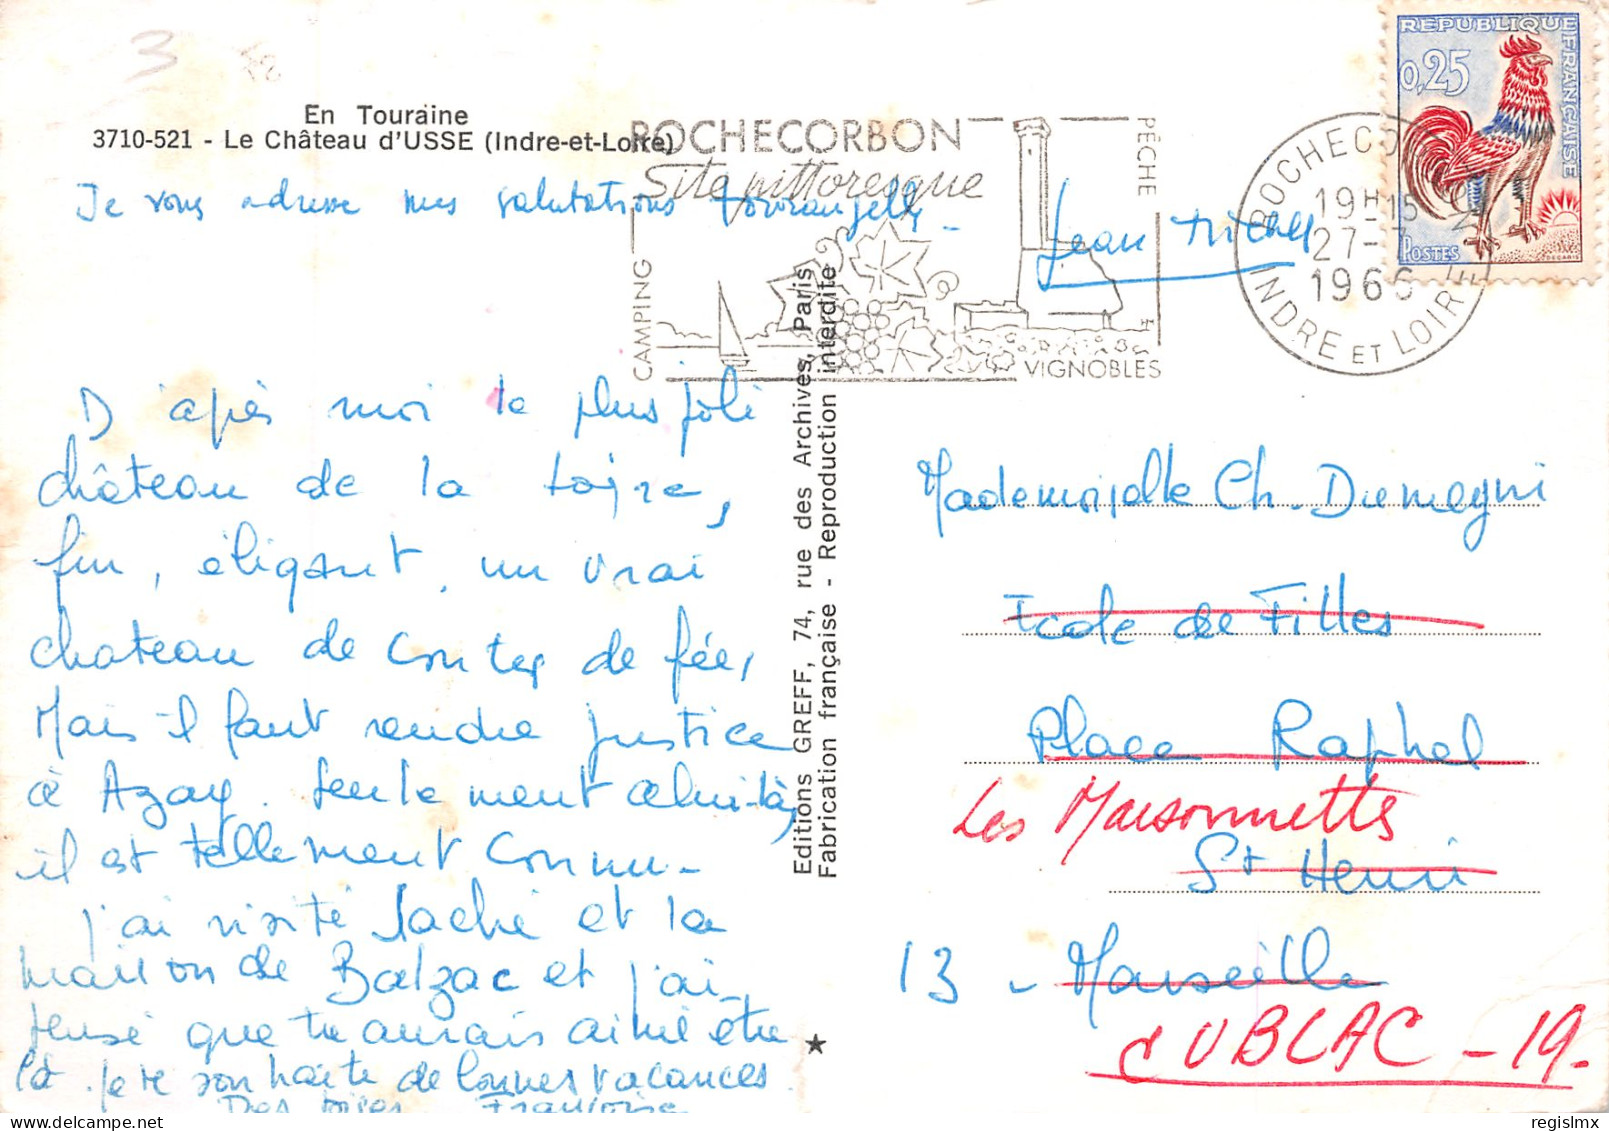 3
En Touraine
3710-521 - Le Château d'USSE (Indre-et-Loire)
ROCHECORBON
Site pittoresque
PÊCHE
CAMPING
VIGNOBLES
ROCHECO
19H15
27-7
1966
INDRE ET LOIRE
REPUBLIQUE FRANÇAISE
0,25
POSTES
DECARIS
Je vous adresse mes salutations tourangelles
Jean
D'après moi le plus joli
château de la Loire,
fin, élégant, un vrai
chateau de contes de fée,
Mais il faut rendre justice
à Azay. Seulement celui-là,
il est tellement connu -
j'ai visité Saché et la
maison de Balzac et j'ai
pensé que tu aurais aimé être
là. Je te souhaite de bonnes vacances.
Des bises Françoise
Editions GREFF, 74, rue des Archives, Paris
Fabrication française - Reproduction interdite
Mademoiselle Ch. Dumegni
Ecole de Filles
Place Raphel
Les Maisonnettes
St Henri
13 - Marseille
d'UBLAC - 19.
regislmx